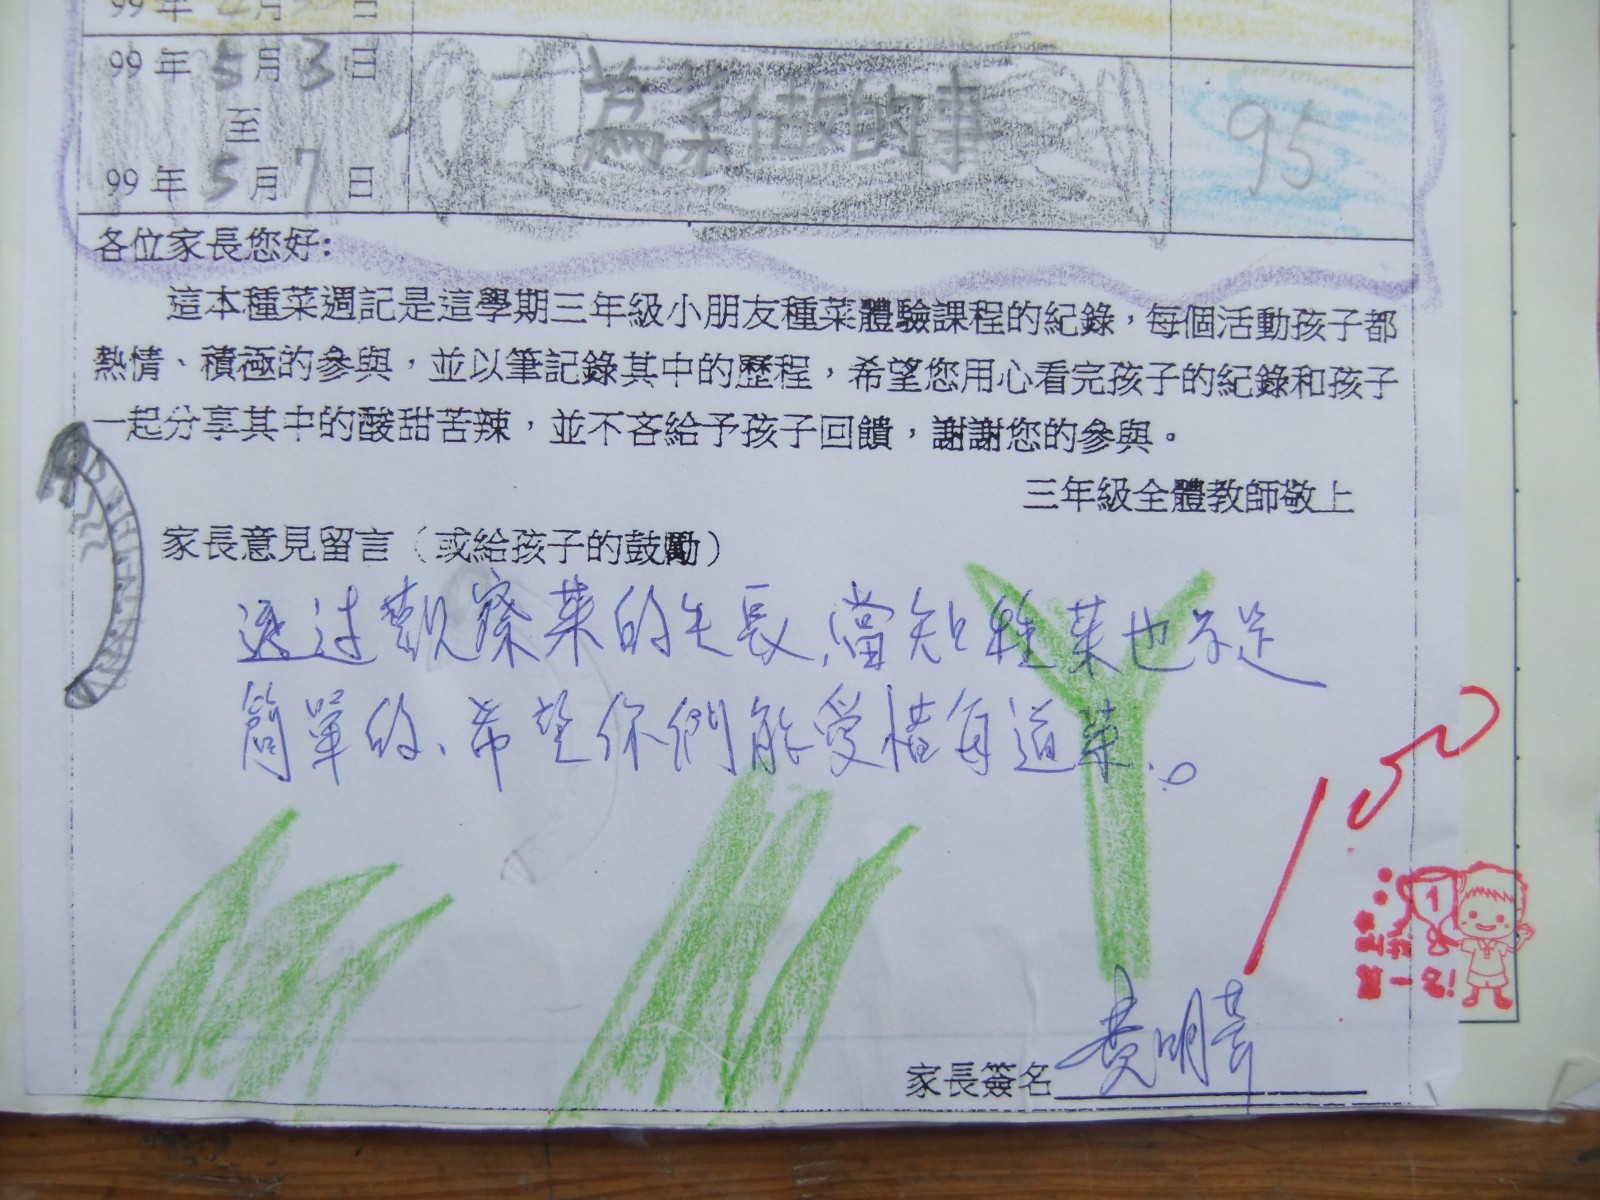 99年 月 日
99年5月3日
至
99年5月7日
為菜做的事
95
各位家長您好:
這本種菜週記是這學期三年級小朋友種菜體驗課程的紀錄，每個活動孩子都
熱情、積極的參與，並以筆記錄其中的歷程，希望您用心看完孩子的紀錄和孩子
一起分享其中的酸甜苦辣，並不吝給予孩子回饋，謝謝您的參與。
三年級全體教師敬上
家長意見留言（或給孩子的鼓勵）
透过觀察菜的生長,當知種菜也不是
簡單的、希望你們能愛惜每道菜.。
100
1
第一名!
家長簽名